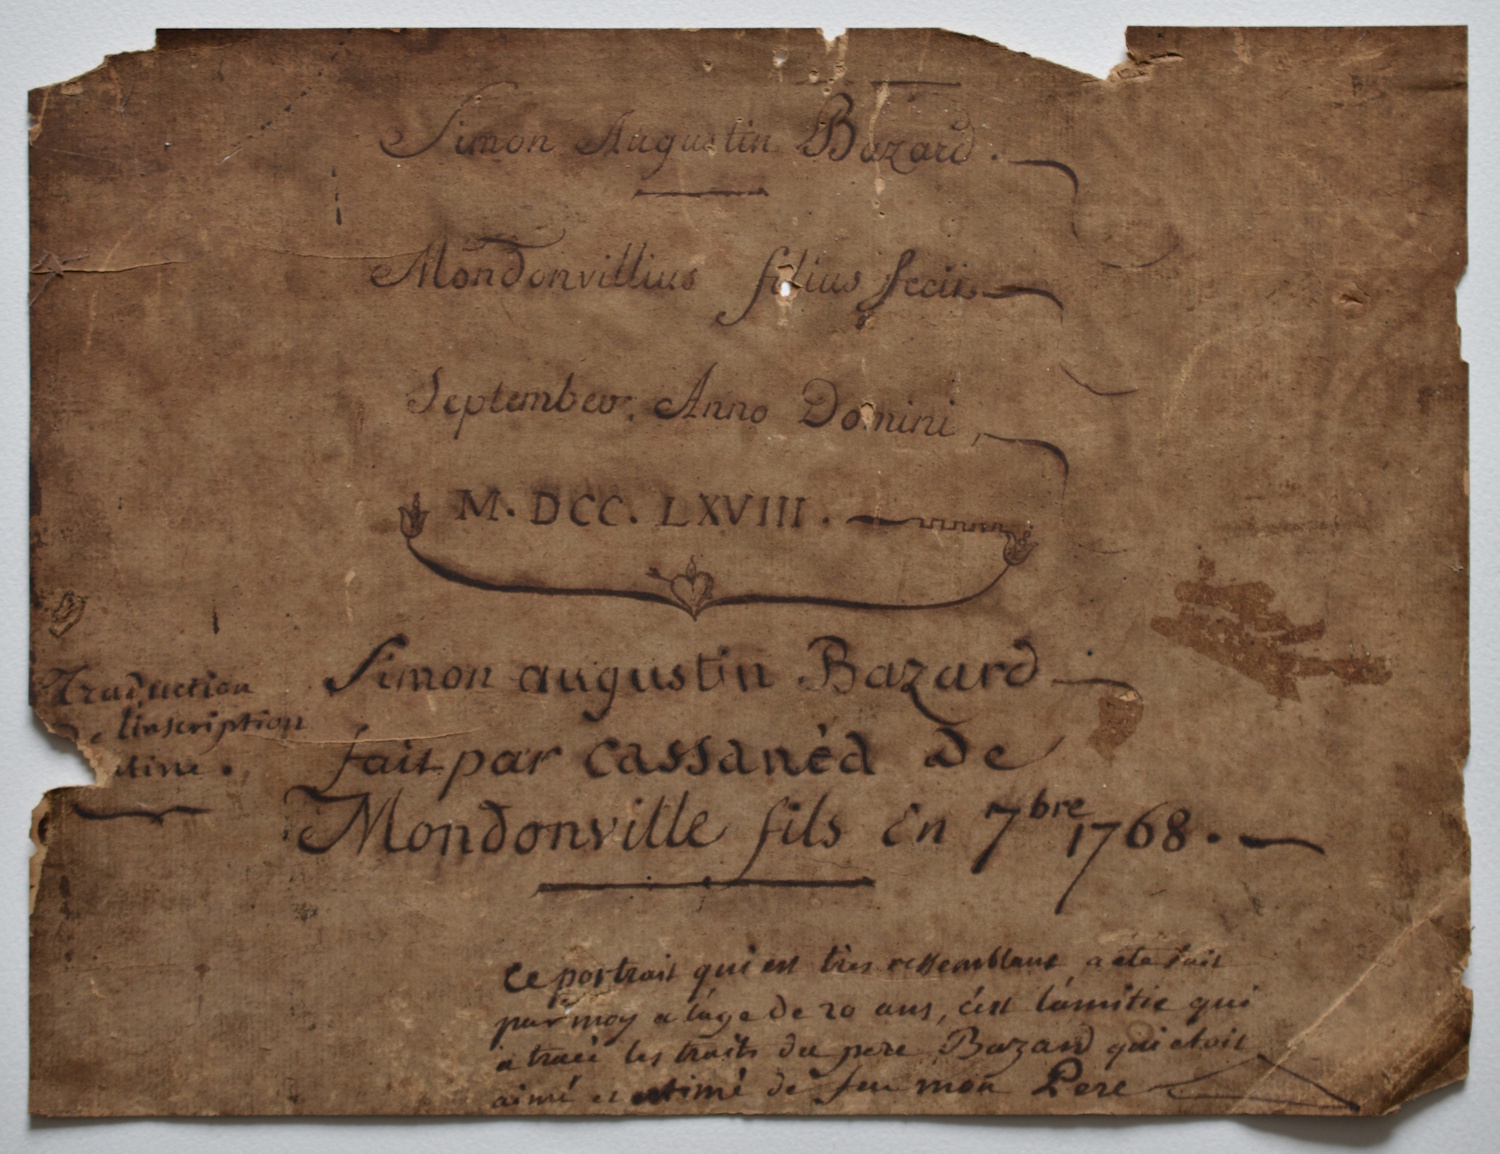 Simon Augustin Bazard.
Mondonvillius filius fecit
September. Anno Domini,
M. DCC. LXVIII.
Traduction
de l'inscription
latine.
Simon augustin Bazard
fait par cassanéa de
Mondonville fils en 7bre 1768.
ce portrait qui est très ressemblant a été fait
par moy a l'age de 20 ans, c'est l'amitié qui
a tracé les traits du pere Bazard qui etoit
aimé et estimé de feu mon Pere